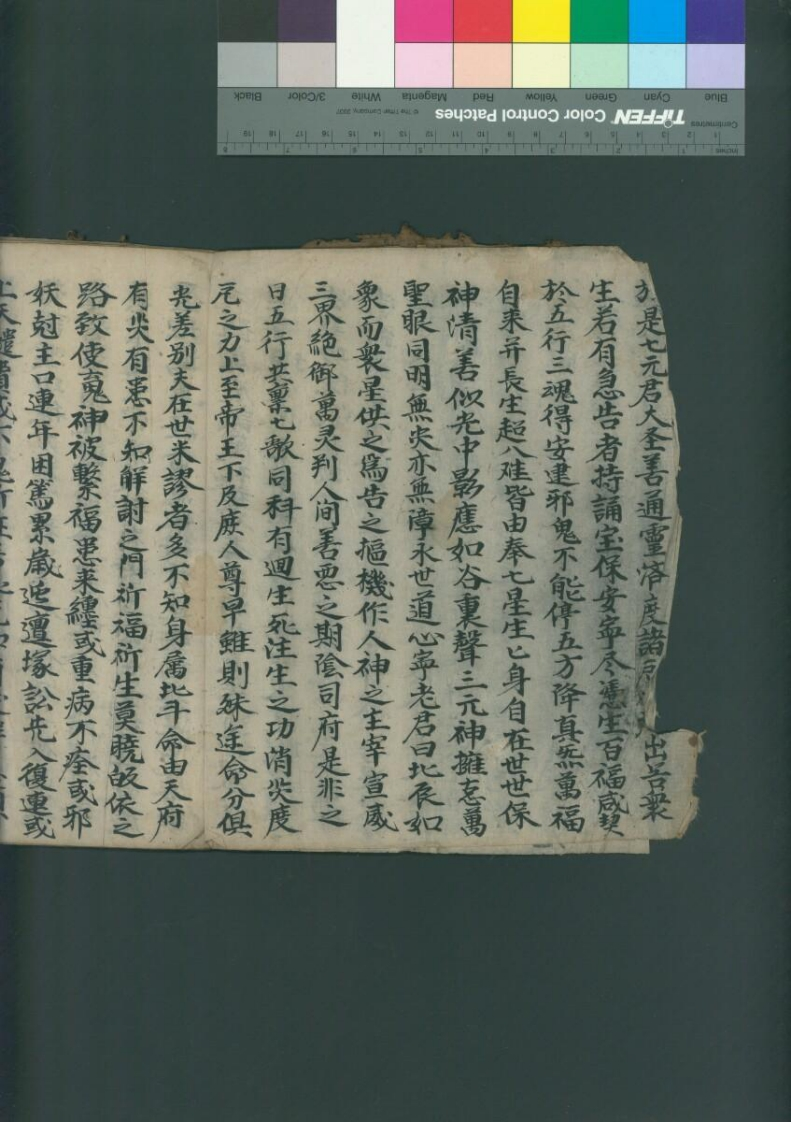 於是七元君大圣善通靈済度諸 出苦衆
生若有急告者持誦宝保安寧尽憑生百福咸契
於五行三魂得安建邪鬼不能停五方降真炁萬福
自来并長生超八难皆由奉七星生亡身自在世世保
神清善似光中影應如谷裏聲三元神擁 萬
聖眼同明無灾亦無漳永世道心寧老君曰北辰如
象而衆星供之為告之摳機作人神之主宰宣威
三界絶御萬灵判人间善惡之期陰司府是非之
日五行共禀七歌同科有迴生死注生之功消灾度
厄之力上至帝王下及庶人尊早雖則殊途命分俱
光差别夫在世米謬者多不知身属北斗命由天府
有灾有患不知解討之門祈福祈生莫曉皈依之
路致使䰟神被繫福患来纏或重病不痊或邪
妖尅主口連年困篤累歲迍邅塚訟先入復連或
上天譴
Blue
Cyan
Green
Yellow
Red
Magenta
White
3/Color
Black
TIFFEN Color Control Patches
© The Tiffen Company, 2007
Centimetres
Inches
1 2 3 4 5 6 7 8 9 10 11 12 13 14 15 16 17 18 19
1 2 3 4 5 6 7 8